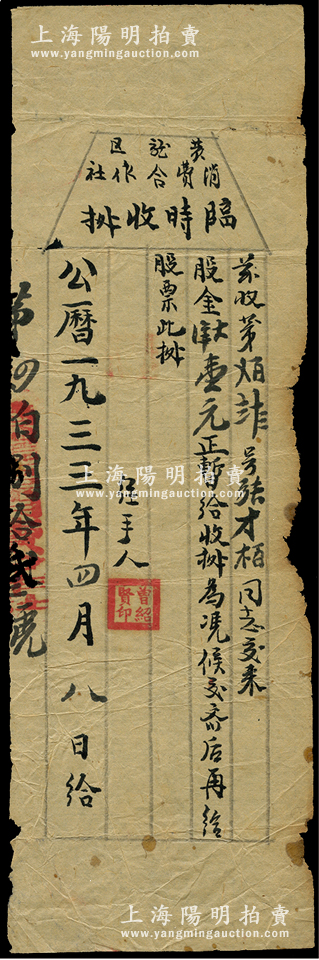 上海陽明拍賣
www.yangmingauction.com
黄龍区
消費合作社
臨時收㨿
茲收第 號張才栢同志交来
股金大壹元正暫給收㨿為凴候交齐后再給
股票此㨿
经手人
曾紹賢印
公曆一九三三年四月八日給
第四百捌拾弍號
上海陽明拍賣
www.yangmingauction.com
上海陽明拍賣
www.yangmingauction.com